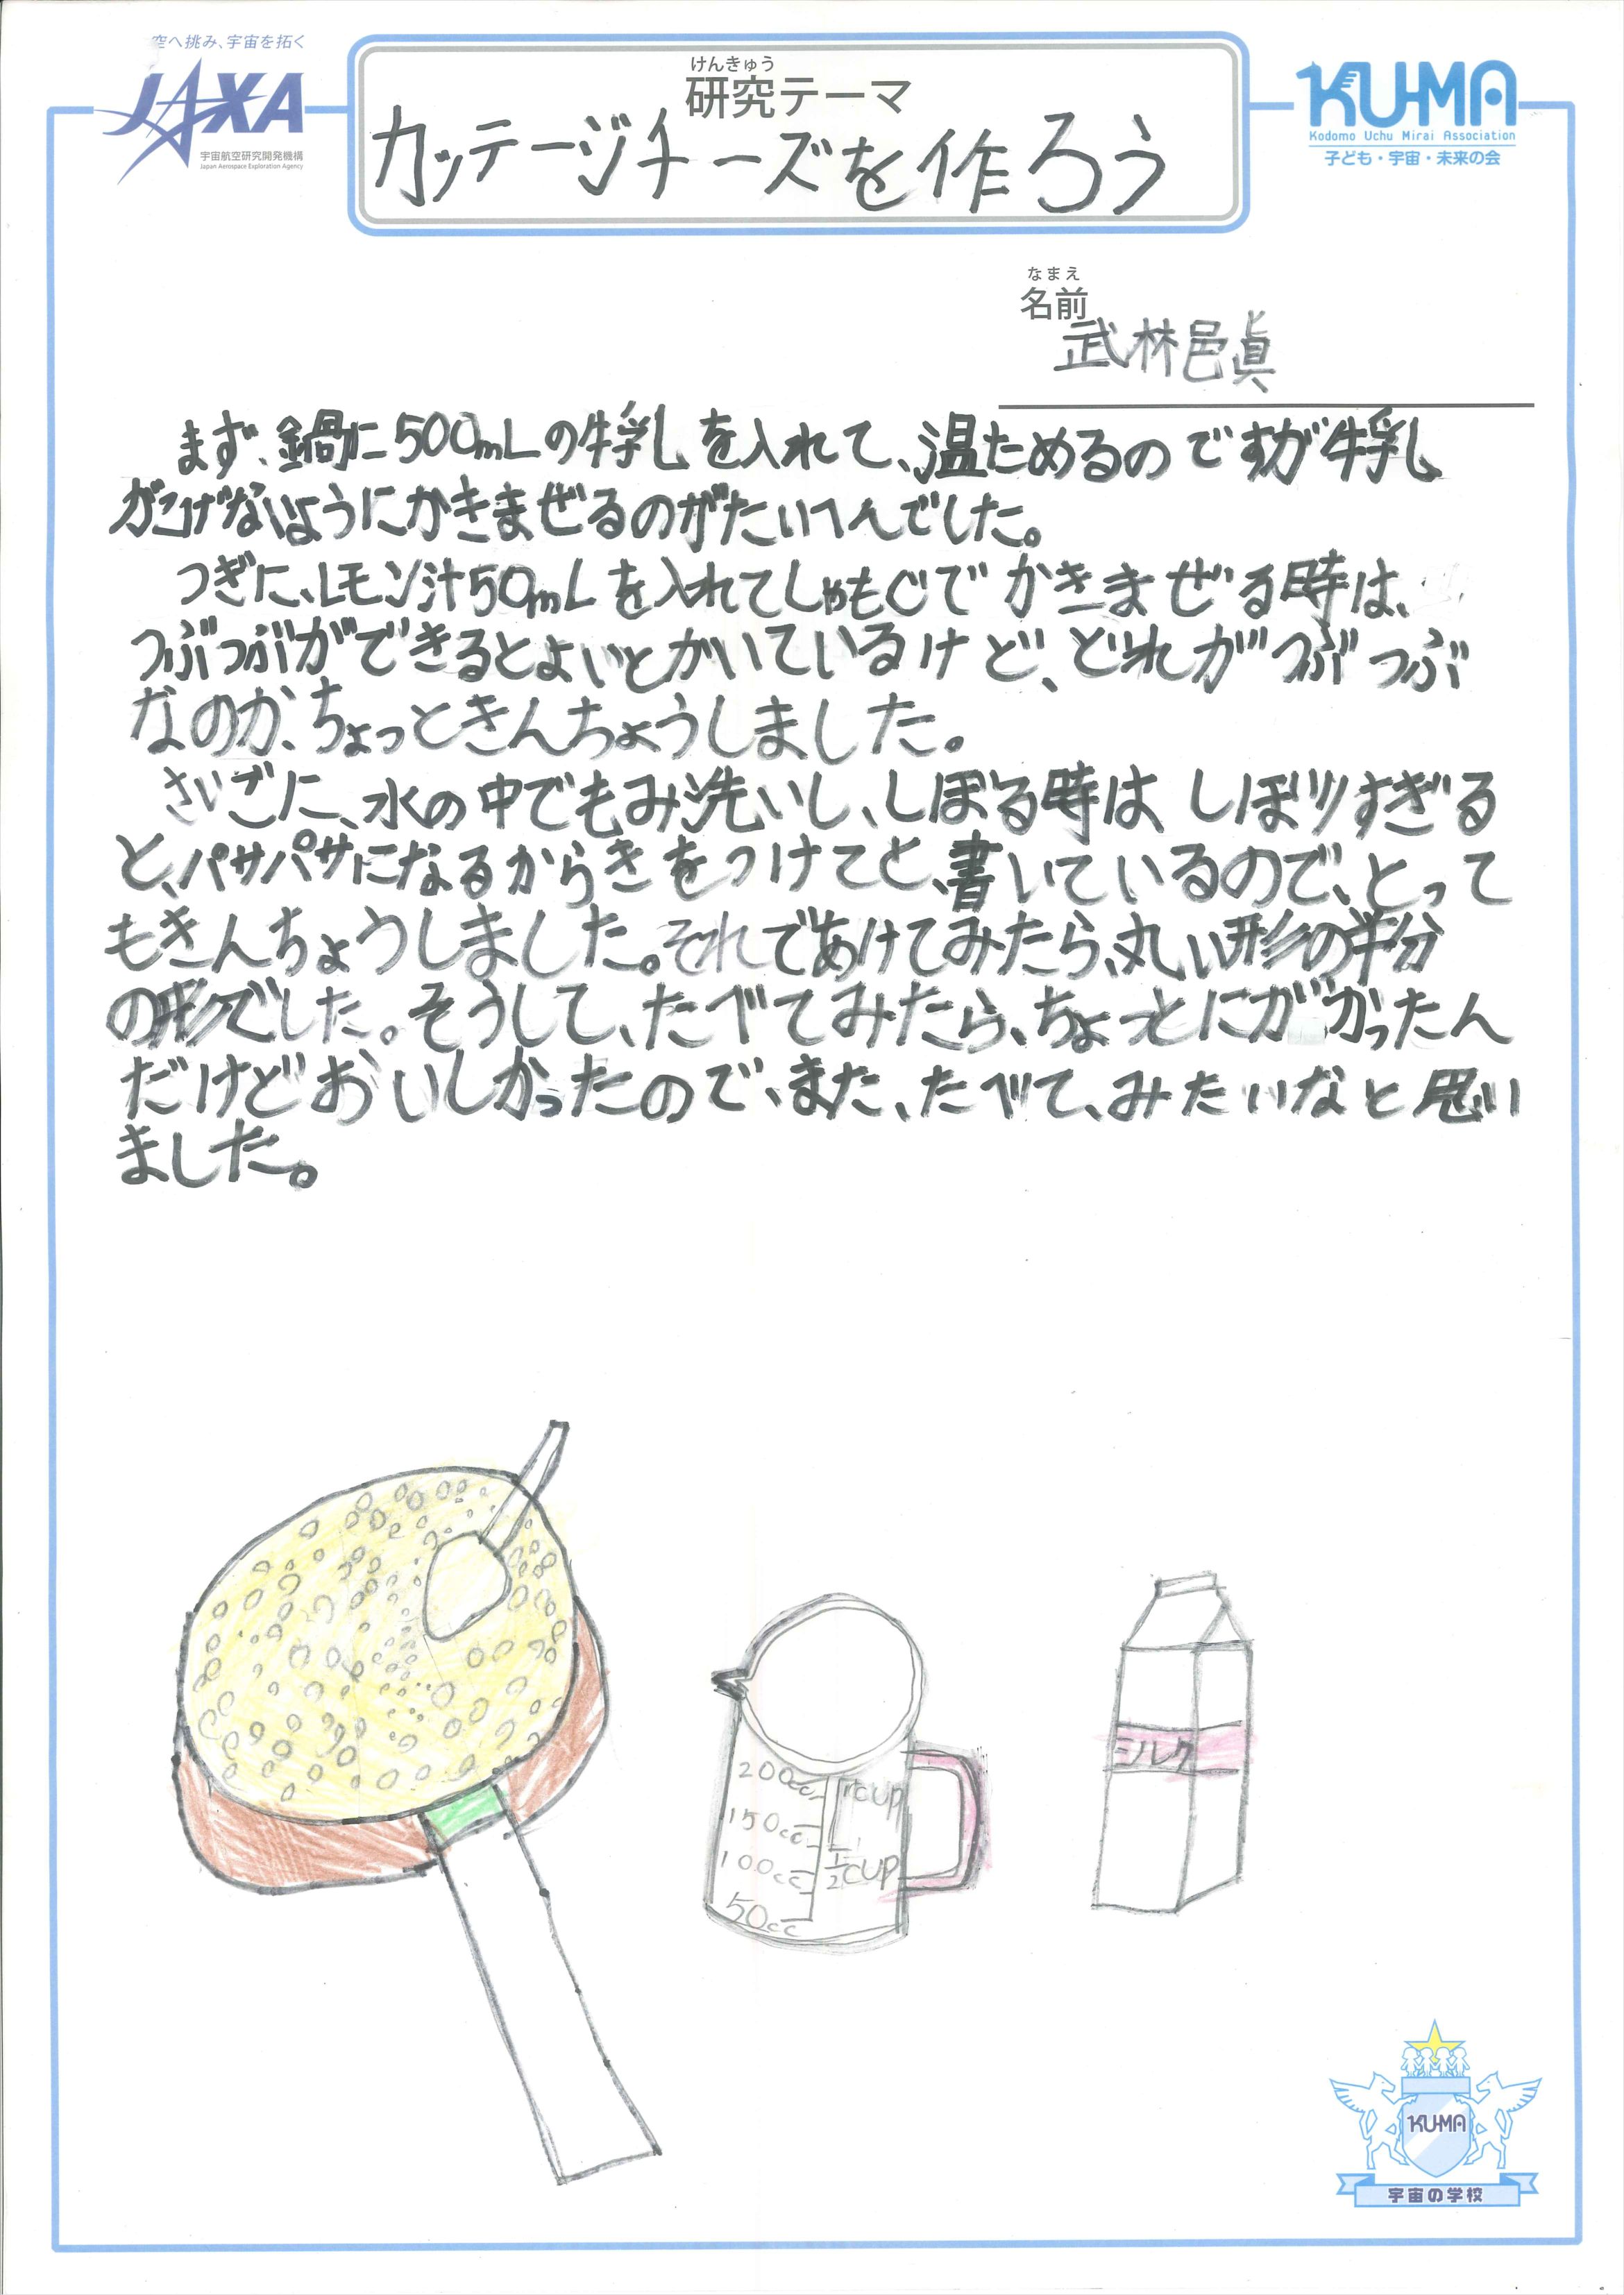 空へ挑み、宇宙を拓く
JAXA
宇宙航空研究開発機構
Japan Aerospace Exploration Agency
けんきゅう
研究テーマ
カッテージチーズを作ろう
KU-MA
Kodomo Uchu Mirai Association
子ども・宇宙・未来の会
なまえ
名前
武林邑眞
まず、鍋に500mLの牛乳を入れて、温ためるのですが牛乳
がこげないようにかきまぜるのがたいへんでした。
つぎに、レモン汁50mLを入れてしゃもじでかきまぜる時は、
つぶつぶができるとよいとかいているけど、どれがつぶつぶ
なのか、ちょっときんちょうしました。
さいごに、水の中でもみ洗いし、しぼる時はしぼりすぎる
と、パサパサになるからきをつけてと、書いているので、とって
もきんちょうしました。それであけてみたら、丸い形の半分
の形でした。そうして、たべてみたら、ちょっとにがかったん
だけどおいしかったので、また、たべて、みたいなと思い
ました。
200cc 1CUP
150cc
100cc 1/2CUP
50cc
ミルク
KU-MA
宇宙の学校